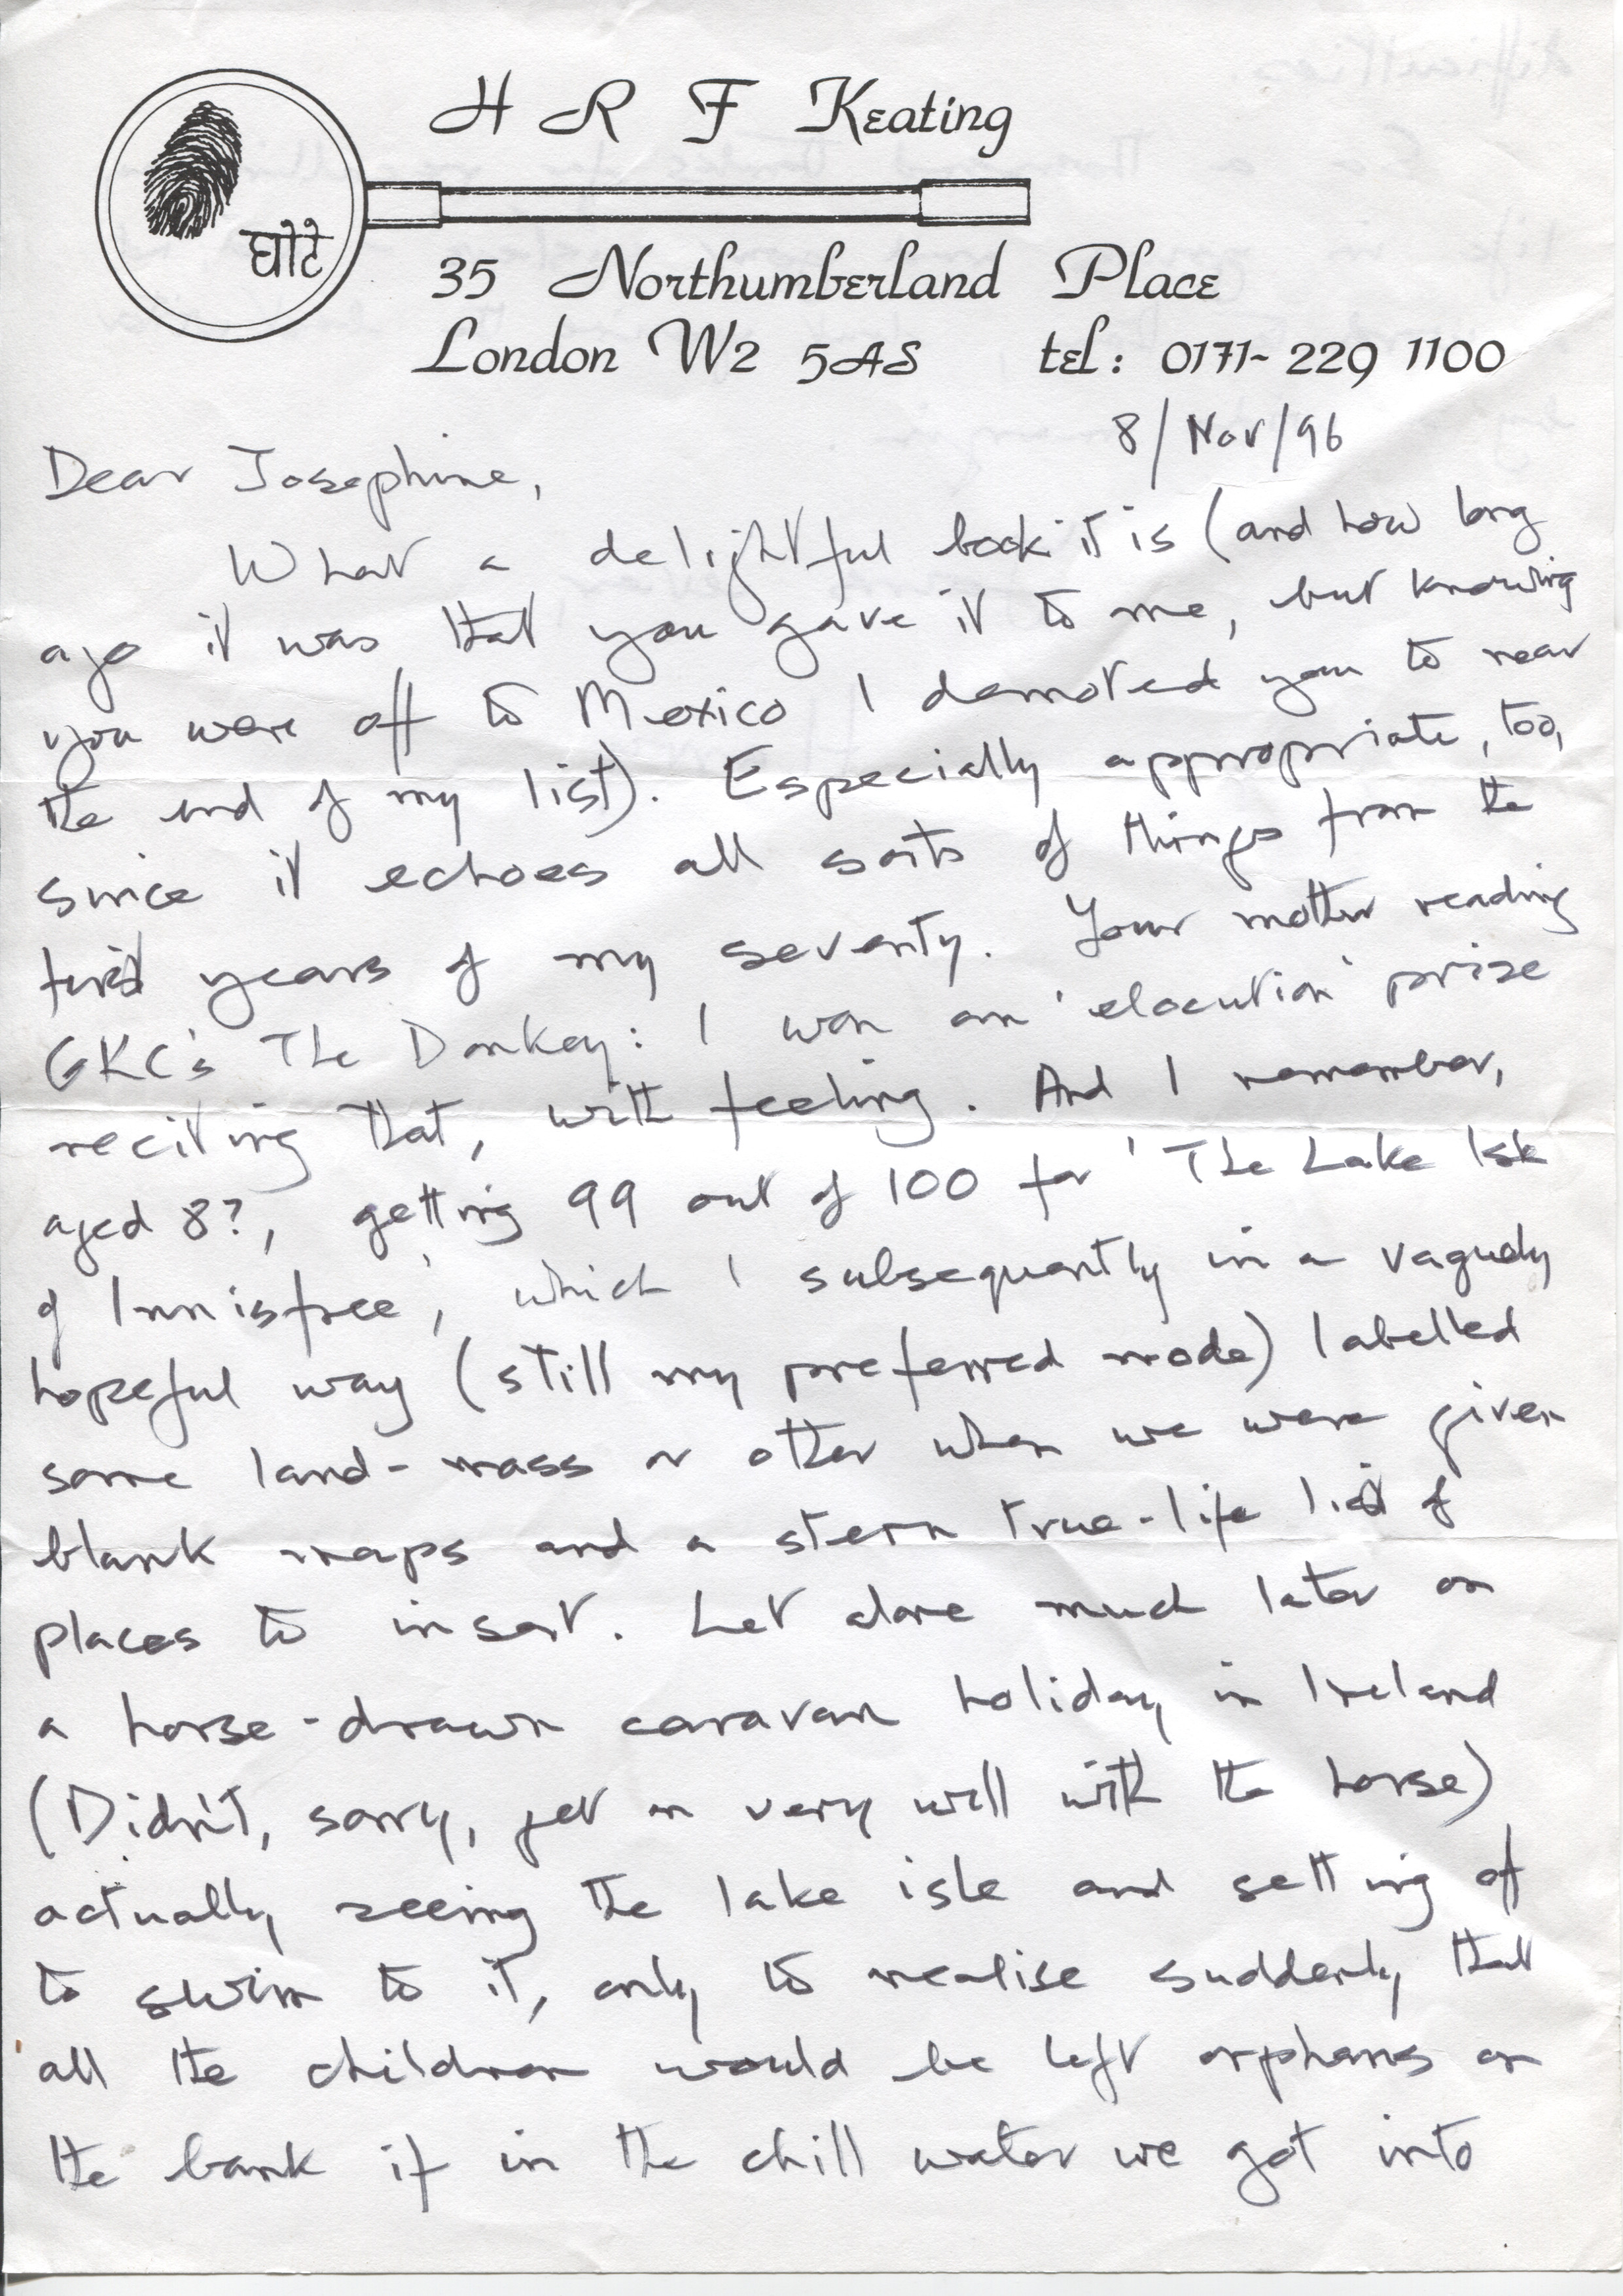 H R F Keating
घोटे
35 Northumberland Place
London W2 5AS tel: 0171-229 1100
8/Nov/96
Dear Josephine,
What a delightful book it is (and how long
ago it was that you gave it to me, but knowing
you were off to Mexico I demoted you to near
the end of my list). Especially appropriate, too,
since it echoes all sorts of things from the
first years of my seventy. Your mother reading
GKC's The Donkey: I won an 'elocution' prize
reciting that, with feeling. And I remember,
aged 8?, getting 99 out of 100 for 'The Lake Isle
of Innisfree', which I subsequently in a vaguely
hopeful way (still my preferred mode) labelled
some land-mass or other when we were given
blank maps and a stern true-life list of
places to insert. Let alone much later on
a horse-drawn caravan holiday in Ireland
(Didn't, sorry, get on very well with the horse)
actually seeing the lake isle and setting off
to swim to it, only to realise suddenly that
all the children would be left orphans on
the bank if in the chill water we got into